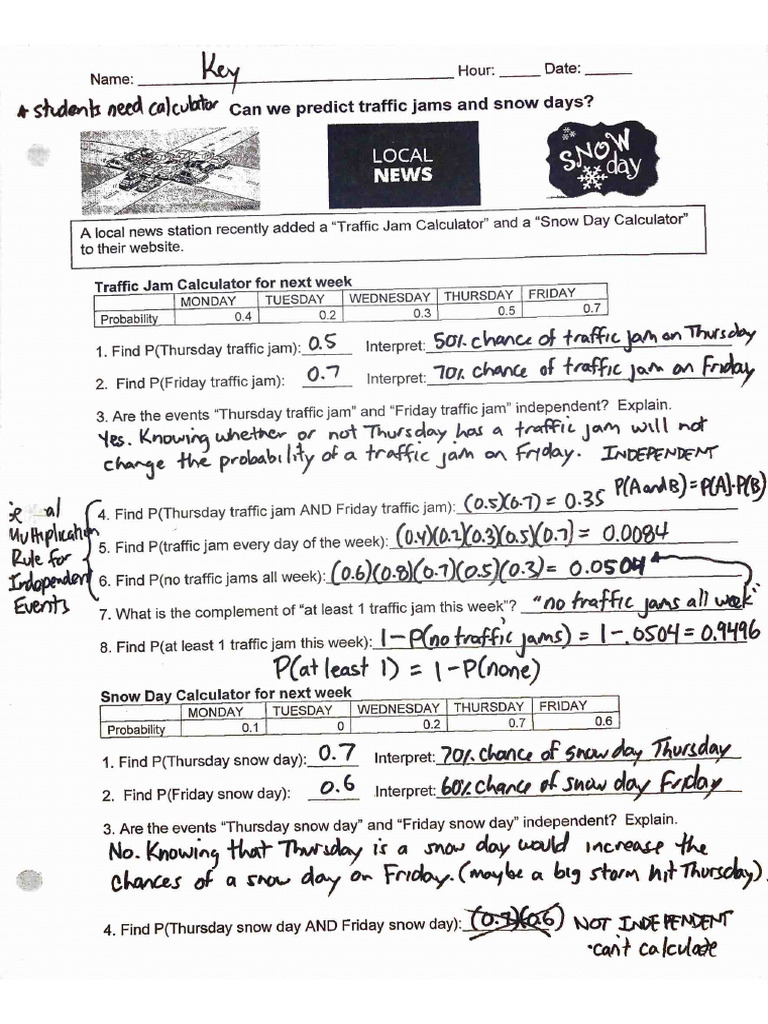 Name: Key Hour: Date:
* students need calculator Can we predict traffic jams and snow days?
LOCAL
NEWS
SNOW
day
A local news station recently added a "Traffic Jam Calculator" and a "Snow Day Calculator"
to their website.
Traffic Jam Calculator for next week
MONDAY TUESDAY WEDNESDAY THURSDAY FRIDAY
Probability 0.4 0.2 0.3 0.5 0.7
1. Find P(Thursday traffic jam): 0.5 Interpret: 50% chance of traffic jam on Thursday
2. Find P(Friday traffic jam): 0.7 Interpret: 70% chance of traffic jam on Friday
3. Are the events "Thursday traffic jam" and "Friday traffic jam" independent? Explain.
Yes. Knowing whether or not Thursday has a traffic jam will not
change the probability of a traffic jam on Friday. INDEPENDENT
P(A and B) = P(A)·P(B)
4. Find P(Thursday traffic jam AND Friday traffic jam): (0.5)(0.7) = 0.35
Multiplication
Rule for
Independent
Events
5. Find P(traffic jam every day of the week): (0.4)(0.2)(0.3)(0.5)(0.7) = 0.0084
6. Find P(no traffic jams all week): (0.6)(0.8)(0.7)(0.5)(0.3) = 0.0504
7. What is the complement of "at least 1 traffic jam this week"? "no traffic jams all week"
8. Find P(at least 1 traffic jam this week): 1-P(no traffic jams) = 1-.0504 = 0.9496
P(at least 1) = 1-P(none)
Snow Day Calculator for next week
MONDAY TUESDAY WEDNESDAY THURSDAY FRIDAY
Probability 0.1 0 0.2 0.7 0.6
1. Find P(Thursday snow day): 0.7 Interpret: 70% chance of snow day Thursday
2. Find P(Friday snow day): 0.6 Interpret: 60% chance of snow day Friday
3. Are the events "Thursday snow day" and "Friday snow day" independent? Explain.
No. Knowing that Thursday is a snow day would increase the
chances of a snow day on Friday. (maybe a big storm hit Thursday).
4. Find P(Thursday snow day AND Friday snow day): (0.7)(0.6) NOT INDEPENDENT
·can't calculate